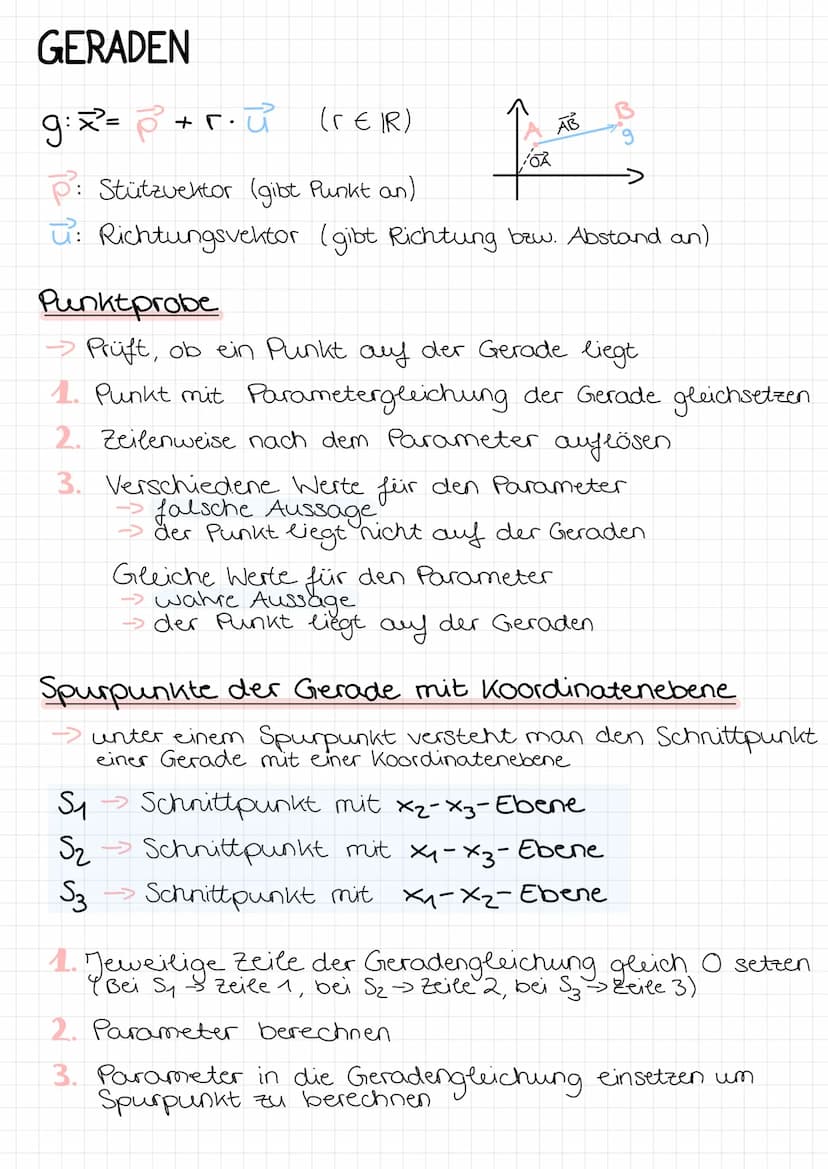 GERADEN
g: x⃗ = p⃗ + r · u⃗ (r ∈ ℝ)
A AB⃗ B g
OA⃗
p⃗: Stützvektor (gibt Punkt an)
u⃗: Richtungsvektor (gibt Richtung bzw. Abstand an)
Punktprobe
→ Prüft, ob ein Punkt auf der Gerade liegt
1. Punkt mit Parametergleichung der Gerade gleichsetzen
2. Zeilenweise nach dem Parameter auflösen
3. Verschiedene Werte für den Parameter
→ falsche Aussage
→ der Punkt liegt nicht auf der Geraden
Gleiche Werte für den Parameter
→ wahre Aussage
→ der Punkt liegt auf der Geraden
Spurpunkte der Gerade mit Koordinatenebene
→ unter einem Spurpunkt versteht man den Schnittpunkt
einer Gerade mit einer Koordinatenebene
S₁ → Schnittpunkt mit x₂-x₃-Ebene
S₂ → Schnittpunkt mit x₁-x₃-Ebene
S₃ → Schnittpunkt mit x₁-x₂-Ebene
1. Jeweilige Zeile der Geradengleichung gleich 0 setzen
(Bei S₁ → Zeile 1, bei S₂ → Zeile 2, bei S₃ → Zeile 3)
2. Parameter berechnen
3. Parameter in die Geradengleichung einsetzen um
Spurpunkt zu berechnen